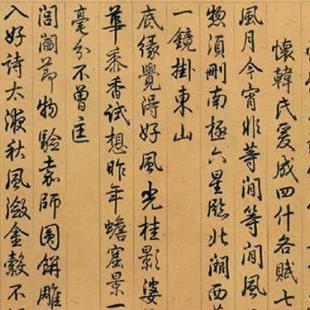 懷韓氏爰成四什各賦七
風月今宵非等閒等閒風
惣須刪南極六星臨北闕西
一鏡掛東山
底緣覺得好風光桂影婆
華黍香試想昨年蟾窟景一
毫分不曾匡
閭閻節物驗袁師圓餅雕
入好詩太液秋風瀲金縠不